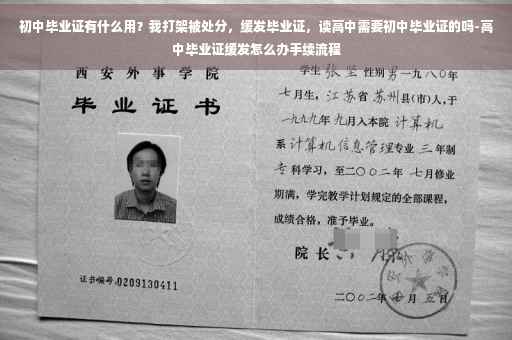 初中毕业证有什么用？我打架被处分，缓发毕业证，读高中需要初中毕业证的吗-高
中毕业证缓发怎么办手续流程
西安外事学院
毕业证书
证书编号:0209130411
学生 张坚 性别 男 一九八〇年
七月生，江苏省 苏州县(市)人,于
一九九九年 九月入本院 计算机
系 计算机信息管理专业 三 年制
专 科学习，至二〇〇二年 七月修业
期满，学完教学计划规定的全部课程，
成绩合格，准予毕业。
院长
二〇〇二年 月 五日